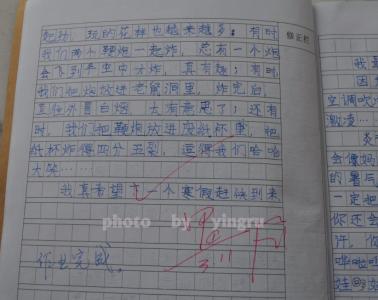 起劲，玩的花样也越来越多：有时
我们两个鞭炮一起炸，总有一个炮
会飞到半空中才炸，真有趣；有时
我们把炮放进老鼠洞里，炸完后，
里往外冒白烟 太有意思了；还有
时，我们把鞭炮放进废纸杯里，把
纸杯炸得四分五裂，逗得我们哈哈
大笑……
我真希望下一个寒假赶快到来
作业完成
修正栏
photo by yingru
3.11
我
因
空调吹
激凌
会像妈
的暑后
一定把
你还会
许，你
哗啦啦
娃